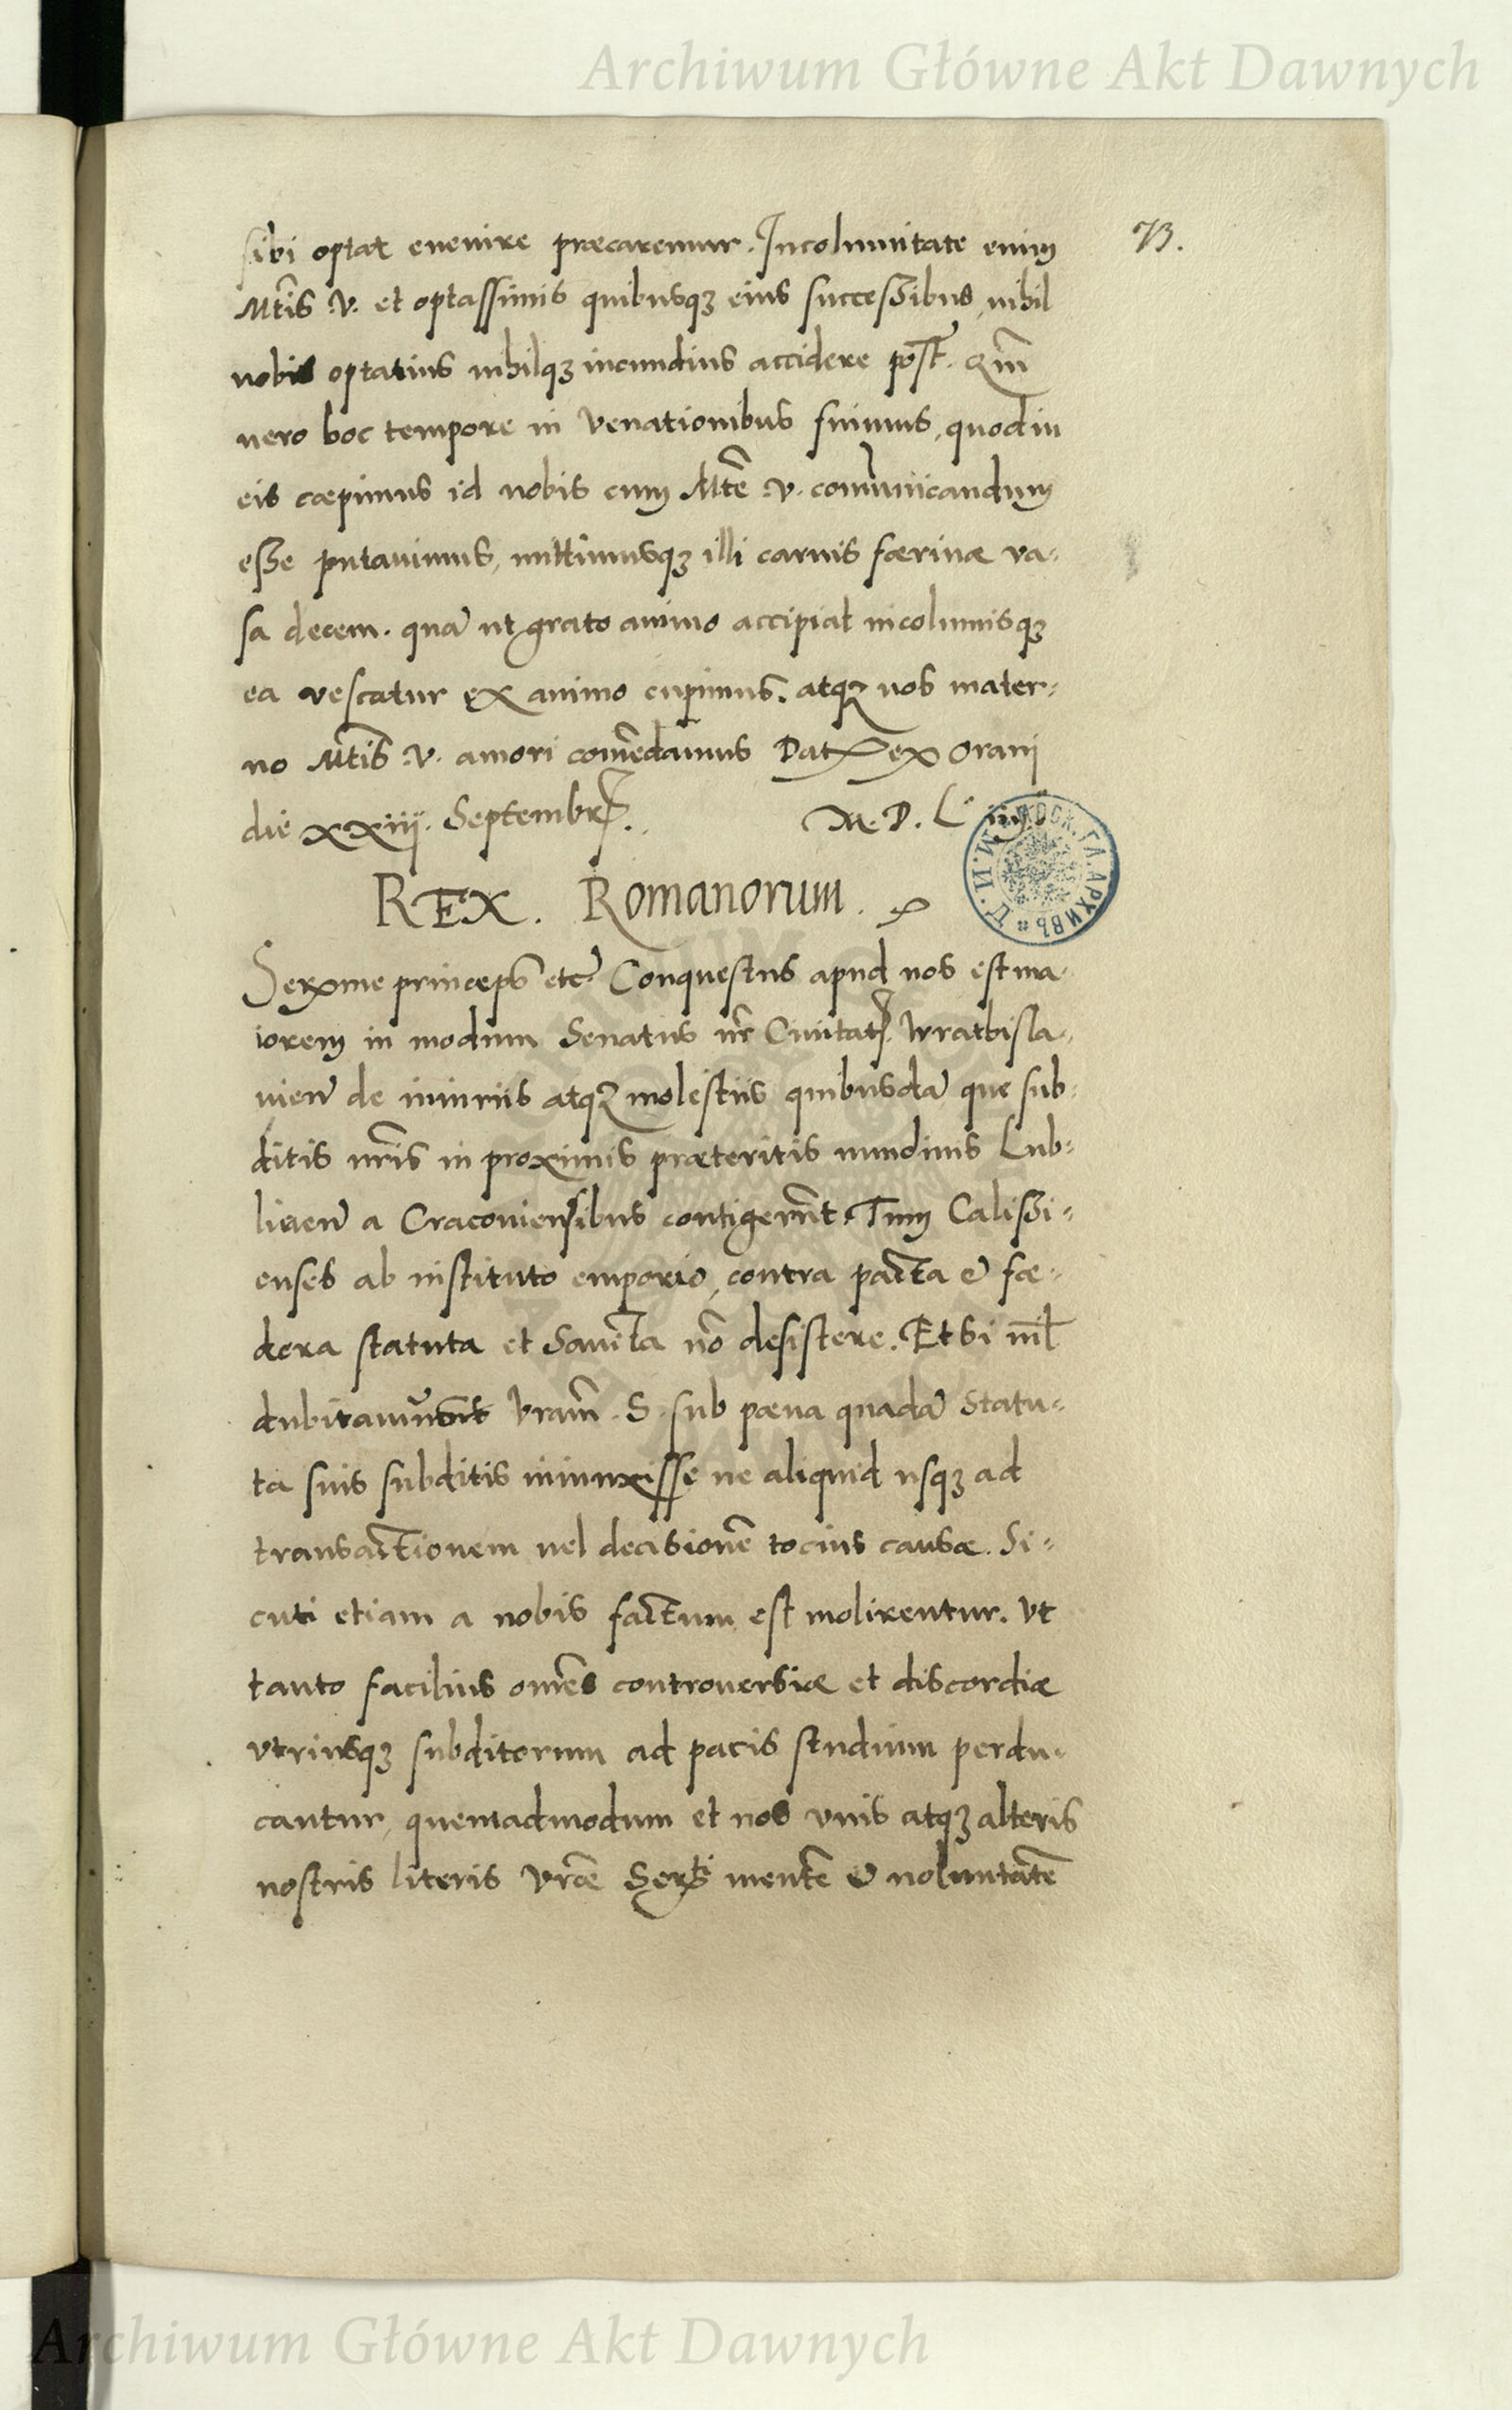 Archiwum Główne Akt Dawnych
73.
sibi optat euenire præcaremur. Incolumitate enim
Mtis V. et optassimis quibusq3 eius successibus, nihil
nobis optatius nihilq3 iucundius accidere post. Qm̄
uero hoc tempore in Venationibus fuimus, quod in
eis cæpimus id nobis cum Mte V. com̄unicandum
esse putauimus, mittimusq3 illi carnis færinæ va-
sa decem. quā ut grato animo accipiat incolumisq3
ea vescatur ex animo cupimus. atq3 nos mater-
no Mtis V. amori com̄edamus Dat ex Orani
die xxiij. Septembr.
M. D. L
REX. Romanorum.
Serme princeps etc. Conquestus apud nos est ma-
iorem in modum Senatus nr̄ Ciuitat. Wratisla-
uieñ de iniuriis atq3 molestiis quibusdā que sub-
ditis nr̄is in proximis præteritis nundinis Lub-
lineñ a Cracouiensibus contigerūt. Tum Calissi-
enses ab instituto emporio, contra pacta & fæ-
dera statuta et Sancita nō desistere. Etsi nil̄
dubitauimus Vram̄. S. sub pæna quadā Statu-
ta suis subditis iniunxisse ne aliquid usq3 ad
transactionem uel decisionē tocius causæ. Si-
cuti etiam a nobis factum est molirentur. Vt
tanto facilius om̄es controuersiæ et discordiæ
vtriusq3 subditorum ad pacis studium perdu-
cantur, quemadmodum et nos vnis atq3 alteris
nostris literis Vræ Sertis mentē & uoluntatē
Archiwum Główne Akt Dawnych